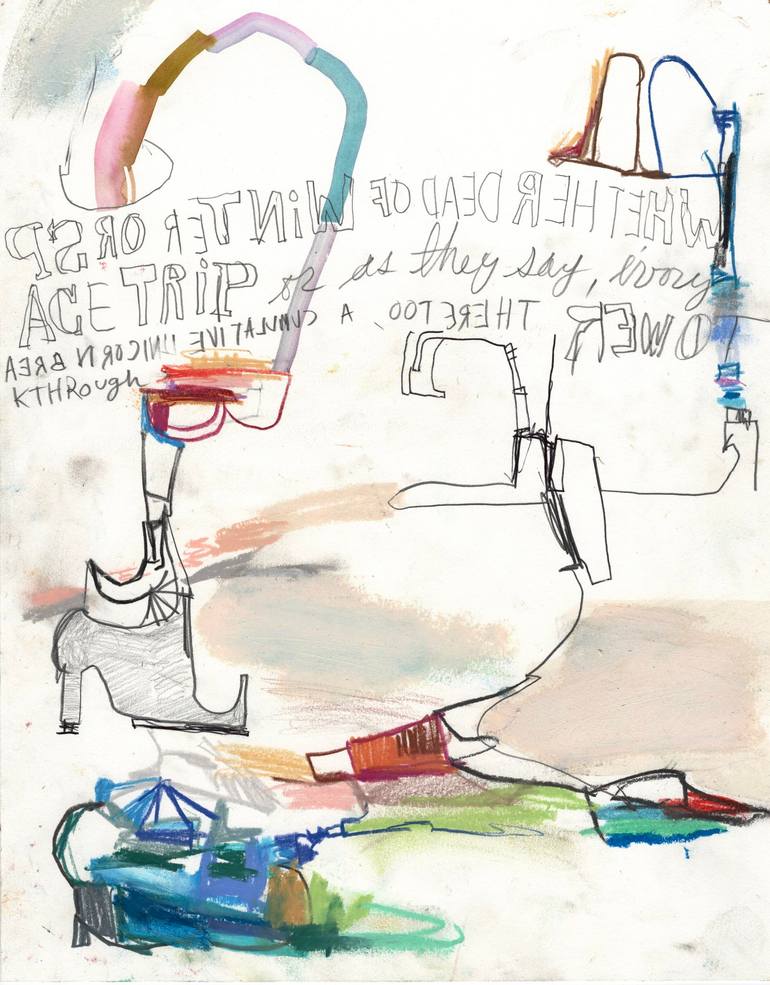 WHETHER DEAD OF WINTER OR SP
ACE TRIP or as they say, ivory
TOWER THERE TOO, A CUMULATIVE UNICORN BREA
KTHROUGH